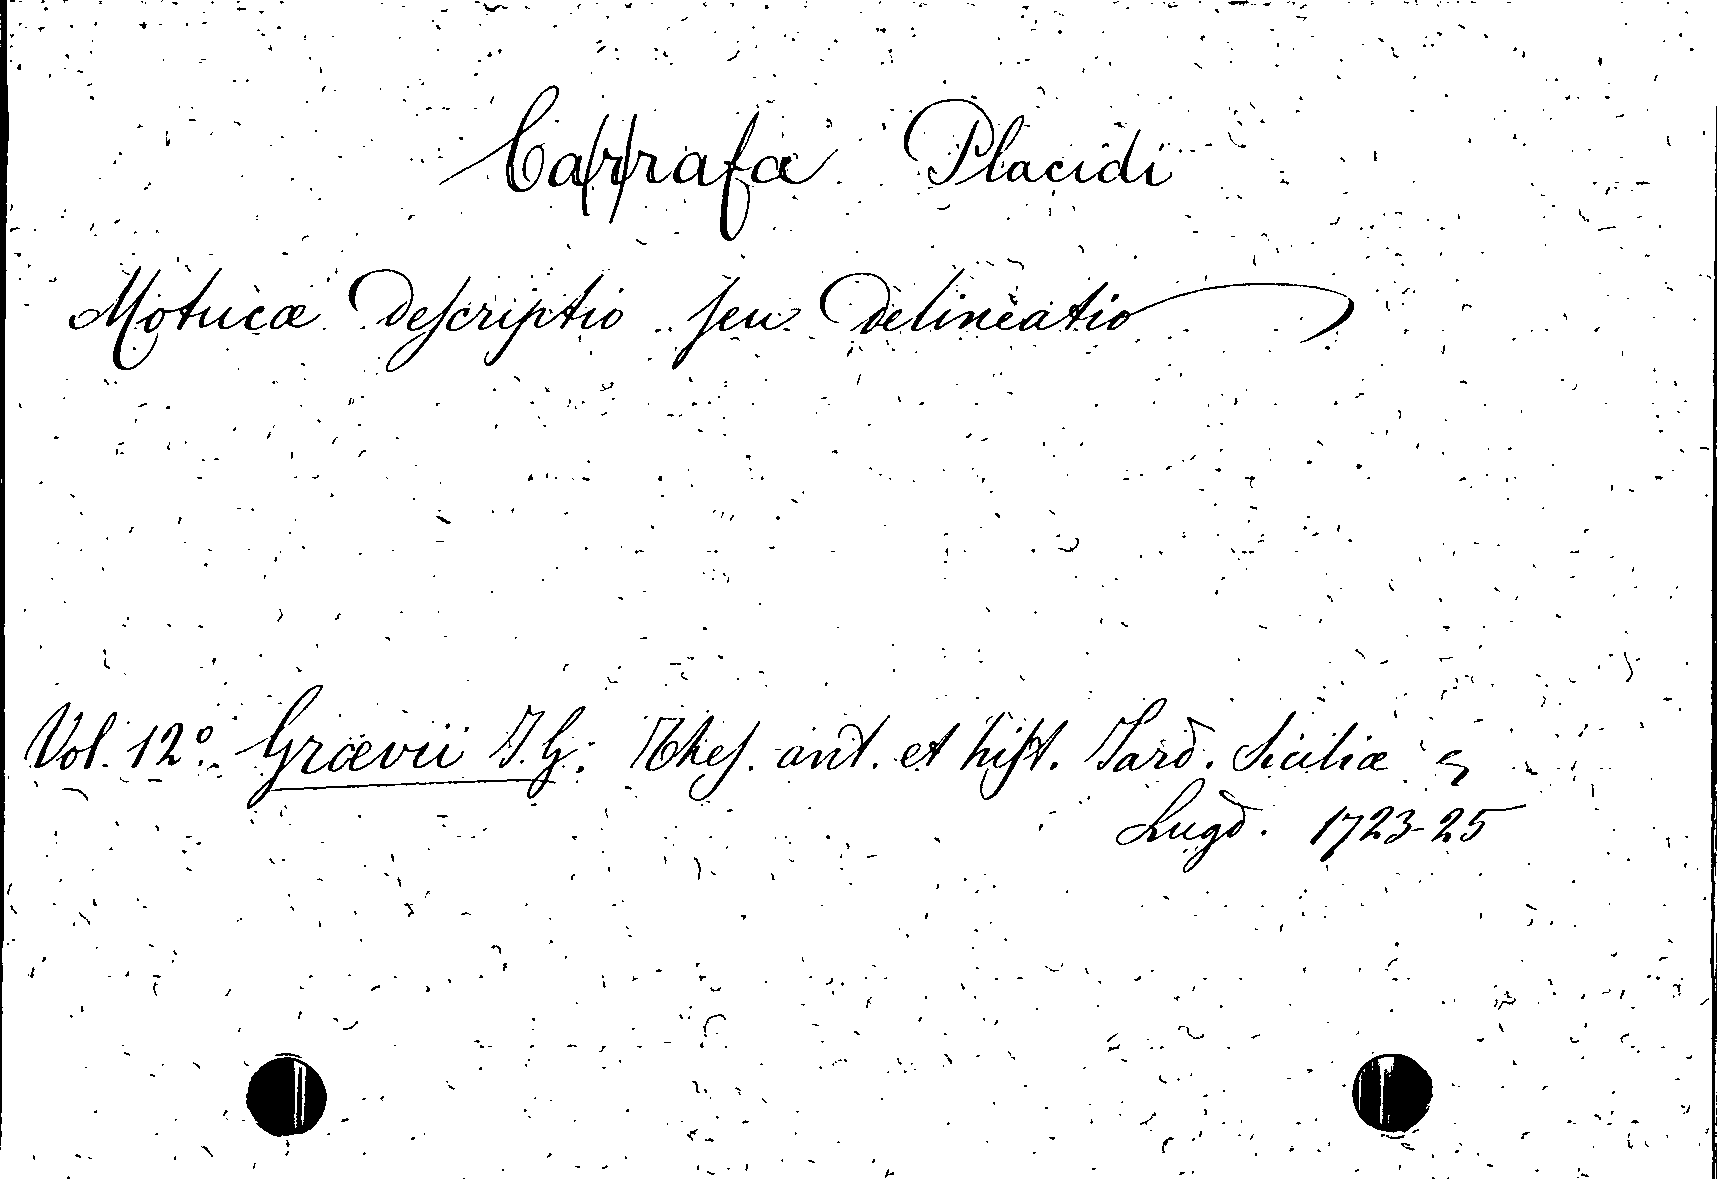 Carrafæ Placidi
Motucæ descriptio seu delineatio
Vol. 12º. Grævii I. G: Thes. ant. et hist. Sard. Siciliæ &
Lugd. 1723-25